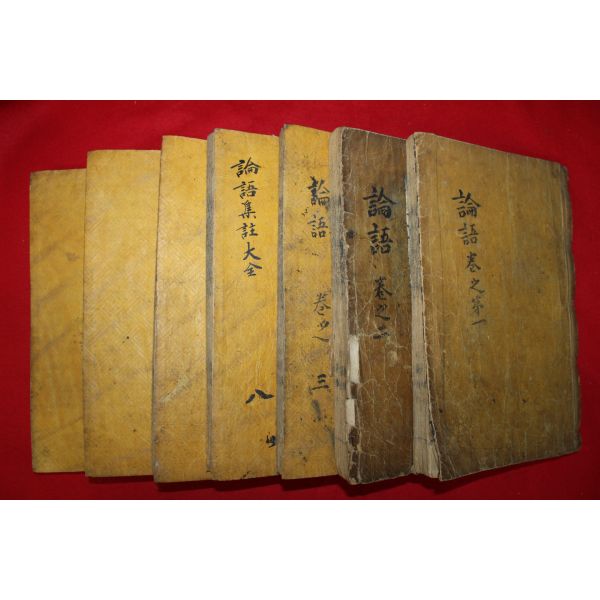 論語卷之第一
論語卷之二
論語卷之三
論語集註大全
八